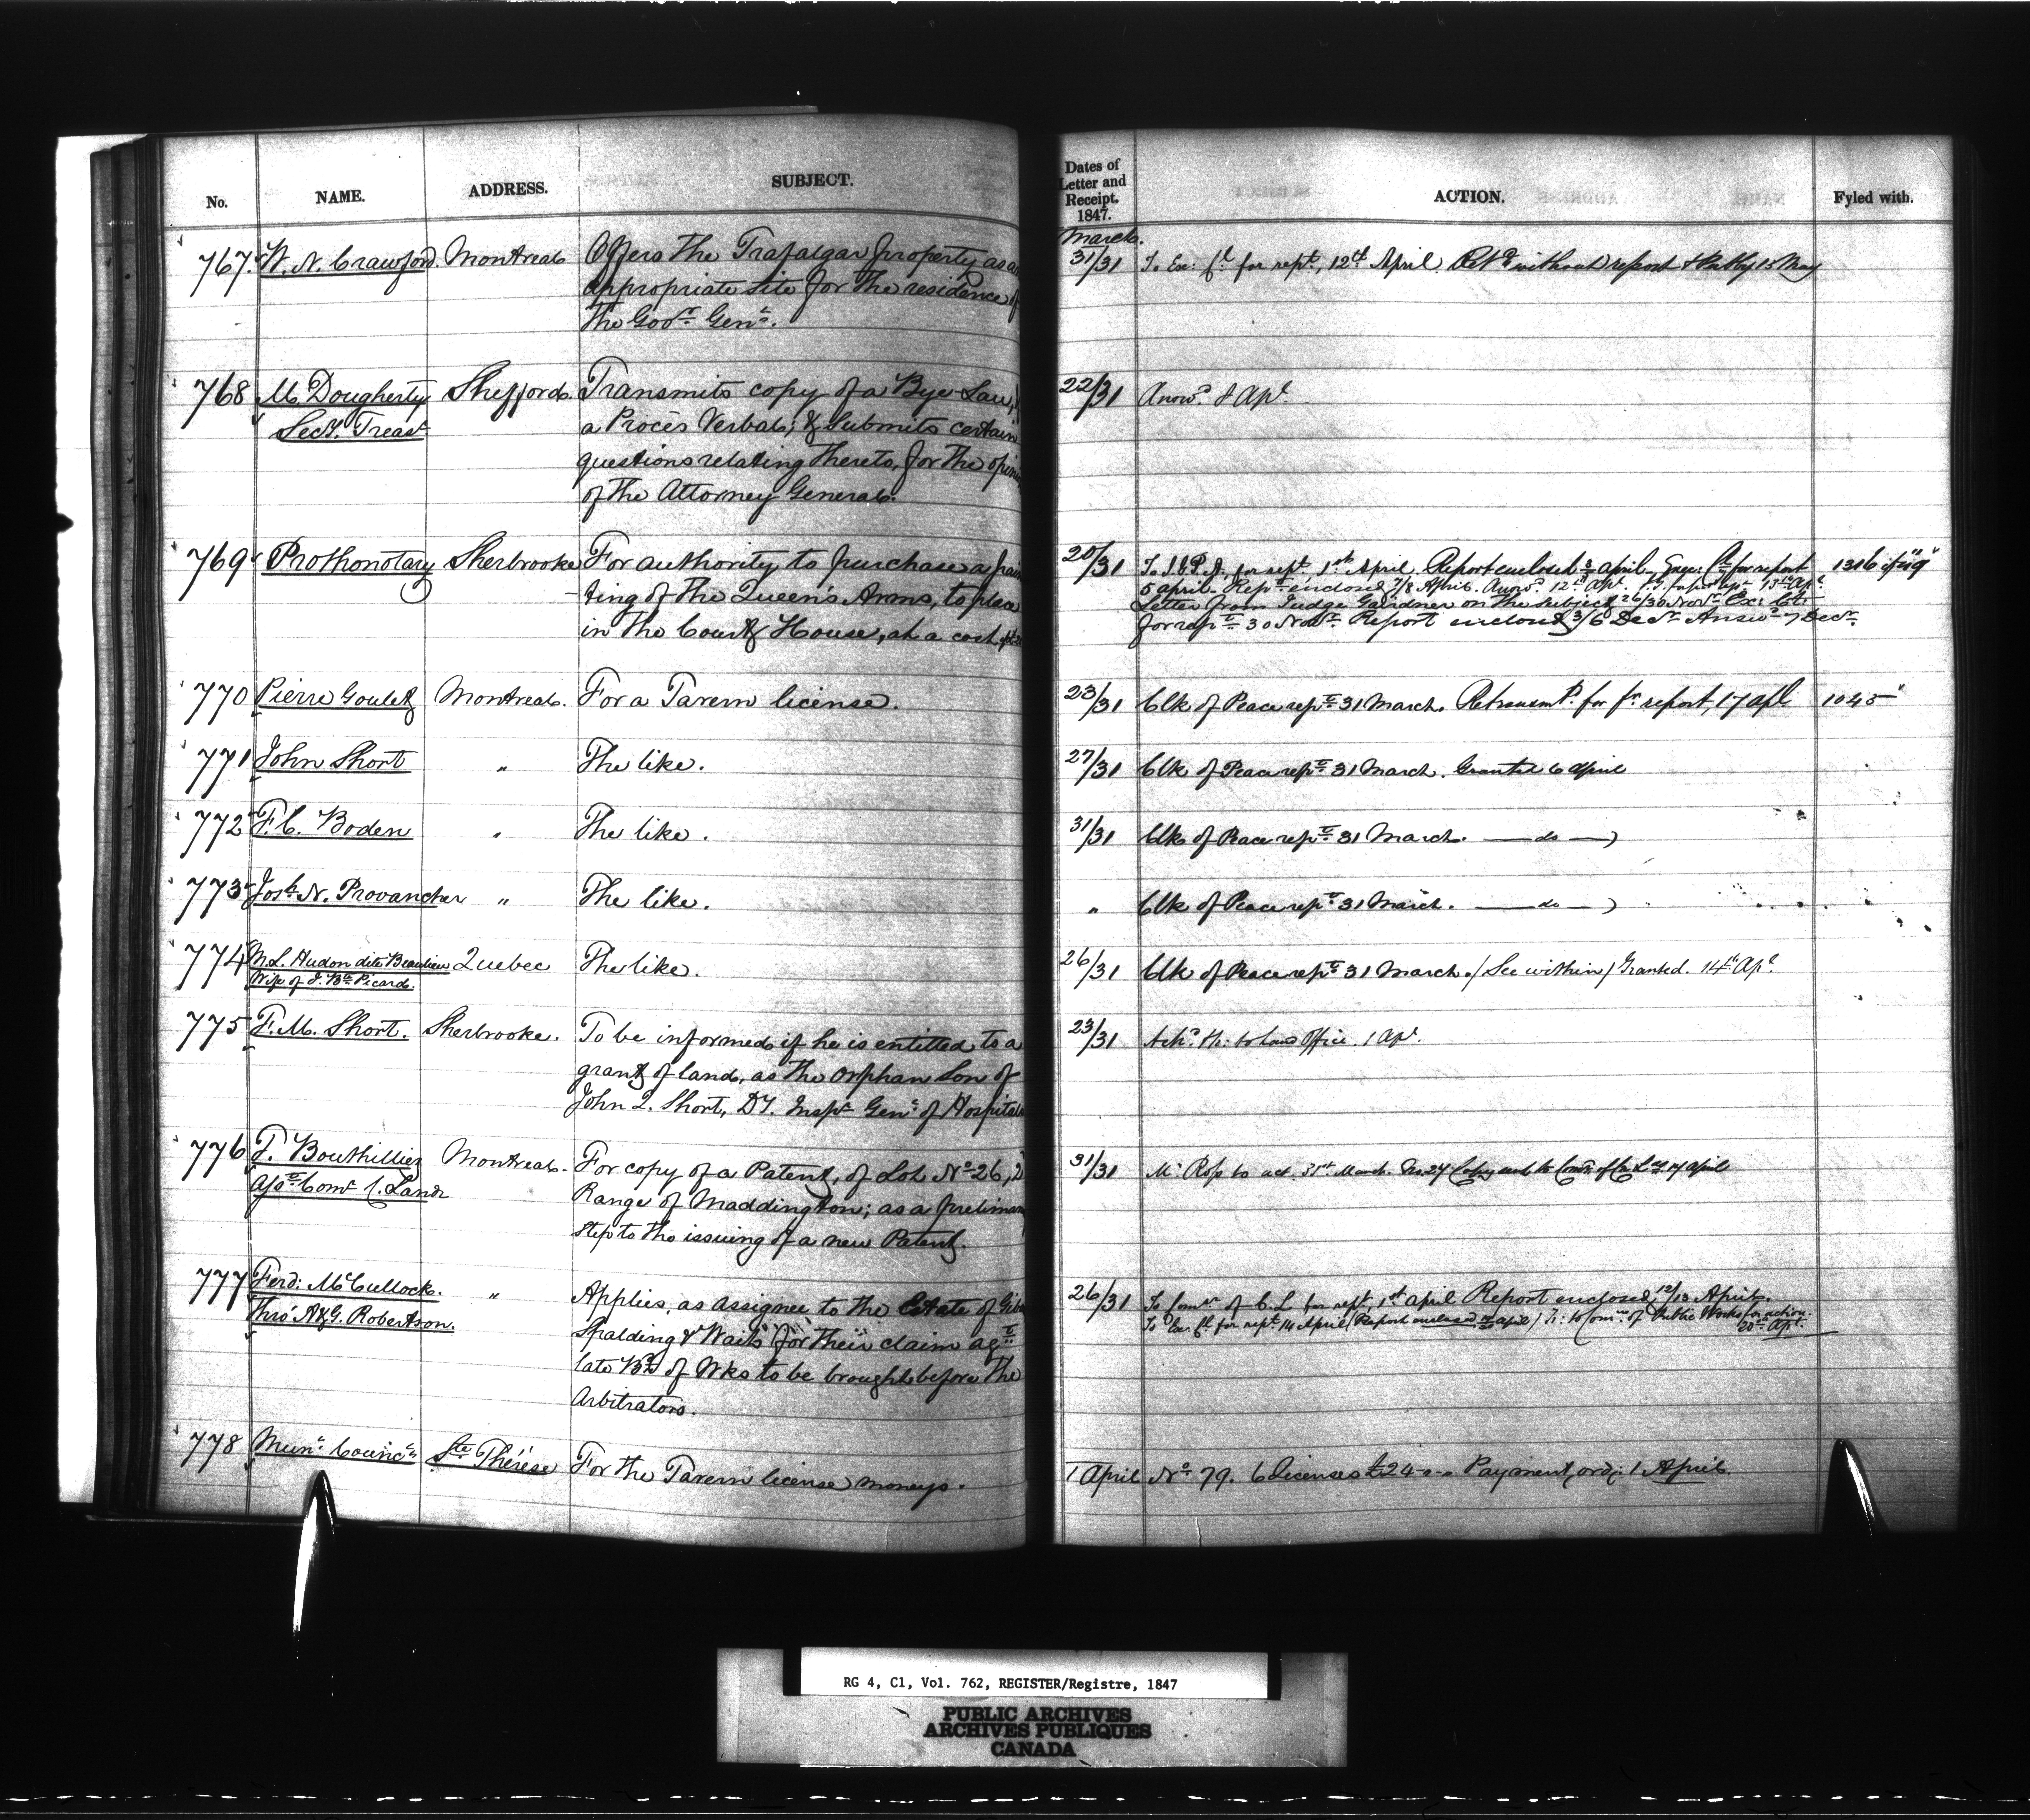 No. NAME. ADDRESS. SUBJECT.
767 W. N. Crawford. Montreal. Offers the Trafalgar property as an
appropriate site for the residence of
the Govr. Genl.
768 M. Dougherty Shefford. Transmits copy of a Bye-Law,
Secy. Treasr a Procès Verbal; & submits certain
questions relating thereto, for the
of the Attorney General.
769 Prothonotary Sherbrooke For authority to purchase a
-ting of the Queen's Arms, to place
in the Court House, at a cost
770 Pierre Goulet Montreal. For a Tavern license.
771 John Short " The like.
772 F. C. Boden " The like.
773 Josh N. Provancher " The like.
774 M. L. Hudon dite Beaulieu Quebec The like.
Wife of J. Bte Picard.
775 F. M. Short. Sherbrooke. To be informed if he is entitled to a
grant of land, as the orphan Son of
John Q. Short, Dy. Inspr Genl of Hospitals
776 T. Bouthillier Montreal. For copy of a Patent, of Lot No 26, 2
Asst Comr C. Lands Range of Maddington; as a
step to the issuing of a new Patent.
777 Ferd: McCullock. " Applies, as assignee to the Estate of
Thro' A & G. Robertson. Spalding & Waits for their claim agst
late Bd of Wks to be brought before the
Arbitrators.
778 Munl Council Ste Thérèse For the Tavern license moneys.
Dates of
Letter and
Receipt.
1847.
ACTION. Fyled with.
March.
31/31 To Ex: Cl for rept, 12th April. Retd without report 15 May
22/31 Answd. 8 Apl.
20/31 for rept. 1st April, Report enclosed 3 april for report 1316 of
5 april - Rept enclosed 7/8 April. Answd. 12th Apl.
Letter from Judge Gairdner on the subject 26/30 Novr. Ex: Cl:
for rept 30 Novr. Report enclosed 3/6 Decr Answd 7 Decr.
23/31 Clk of Peace rept 31 March. Retransmd. for fr report, 17 apl 1045
27/31 Clk of Peace rept 31 March. Granted 6 april
31/31 Clk of Peace rept 31 March. — do —
" Clk of Peace rept 31 March. — do —
26/31 Clk of Peace rept 31 March. (See within) Granted. 14th Apl.
23/31 to Land Office. 1 Apl.
31/31 Mr Ross to act. 31st March. 17 april
26/31 To Comr of C. L for rept, 1st april Report enclosed, 12/13 April.
To Ex. Cl. for rept. 14 April (Report enclosed april) Tr: to Comrs of Public Works for action.
20th Apl.
1 April No 79. 6 Licenses £24-"-" Payment, ord: 1 April.
RG 4, C1, Vol. 762, REGISTER/Registre, 1847
PUBLIC ARCHIVES
ARCHIVES PUBLIQUES
CANADA